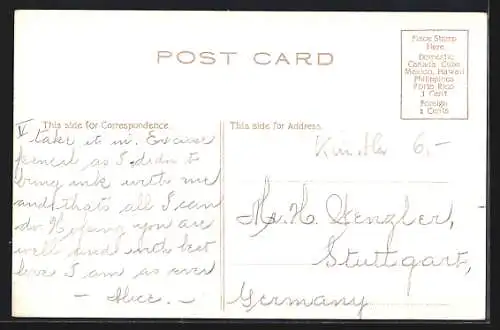 POST CARD
Place Stamp
Here
Domestic
Canada, Cuba
Mexico, Hawaii
Philippines
Porto Rico
1 Cent
Foreign
2 Cents
This side for Correspondence.
V take it in. Excuse
pencil as I didn to
bring ink with me
and thats all I can
do. Hoping you are
well and with best
love I am as ever
- Alice. -
This side for Address.
Künstler 6.-
Mr. H. Denzler,
Stuttgart,
Germany